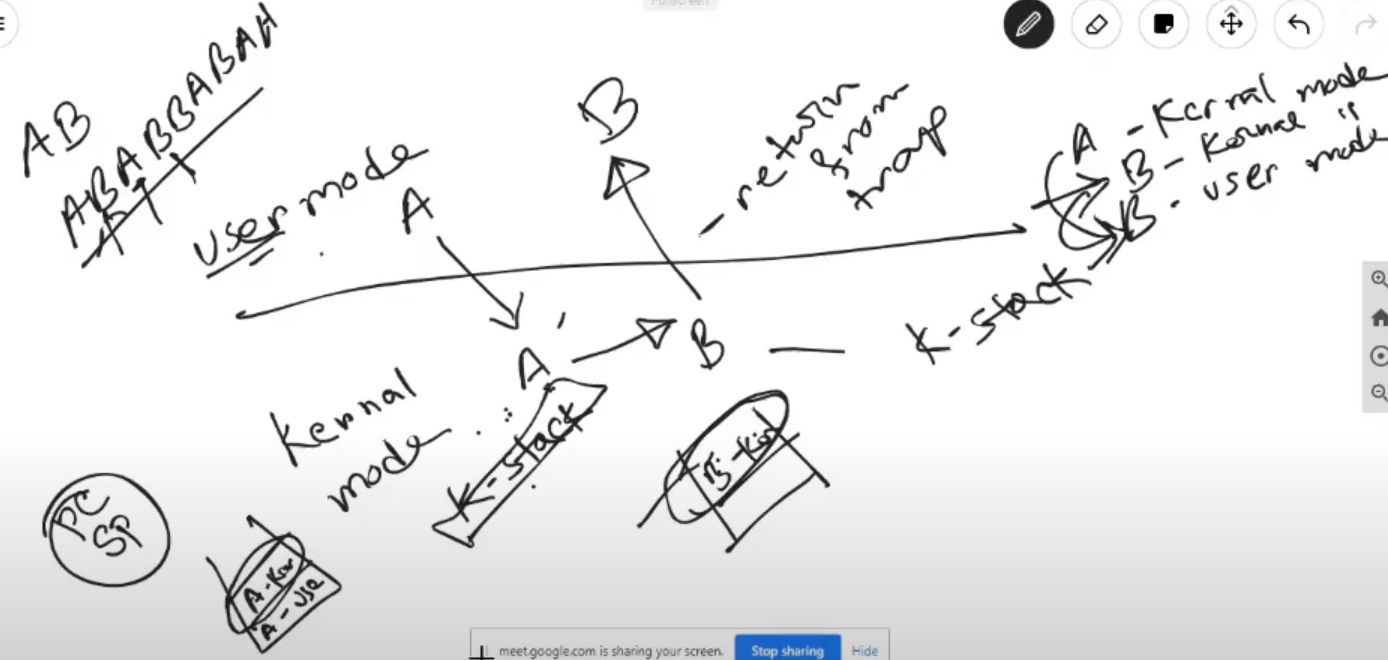 Fullscreen
AB
ABABBABAH
user mode
A
B
- return
from
trap
A - Kernal mode
B - Kornal "
B - user mode
A
B
K-stack
Kernal
mode
K-stack
B-Ker
PC
SP
A-Ker
A-use
meet.google.com is sharing your screen.
Stop sharing
Hide